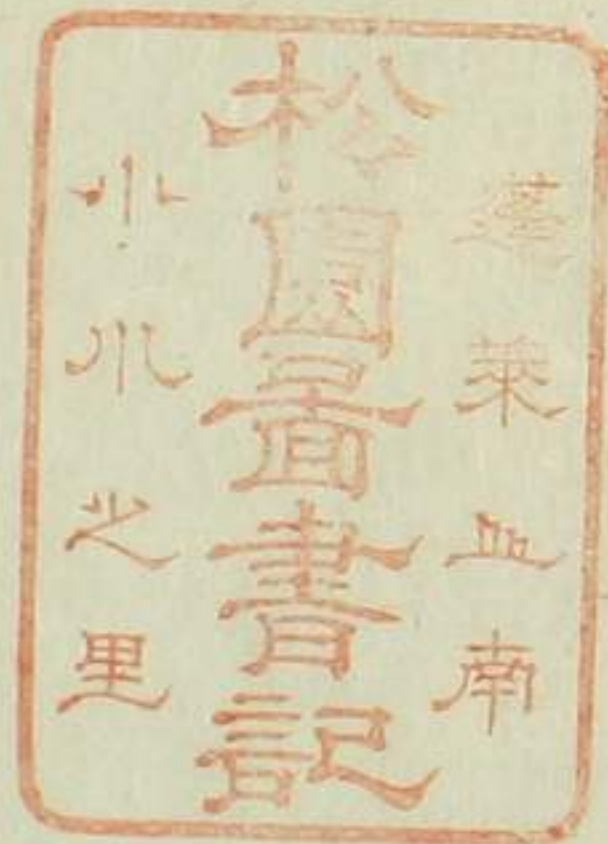 蓬萊山南
松園啚書記
小川之里